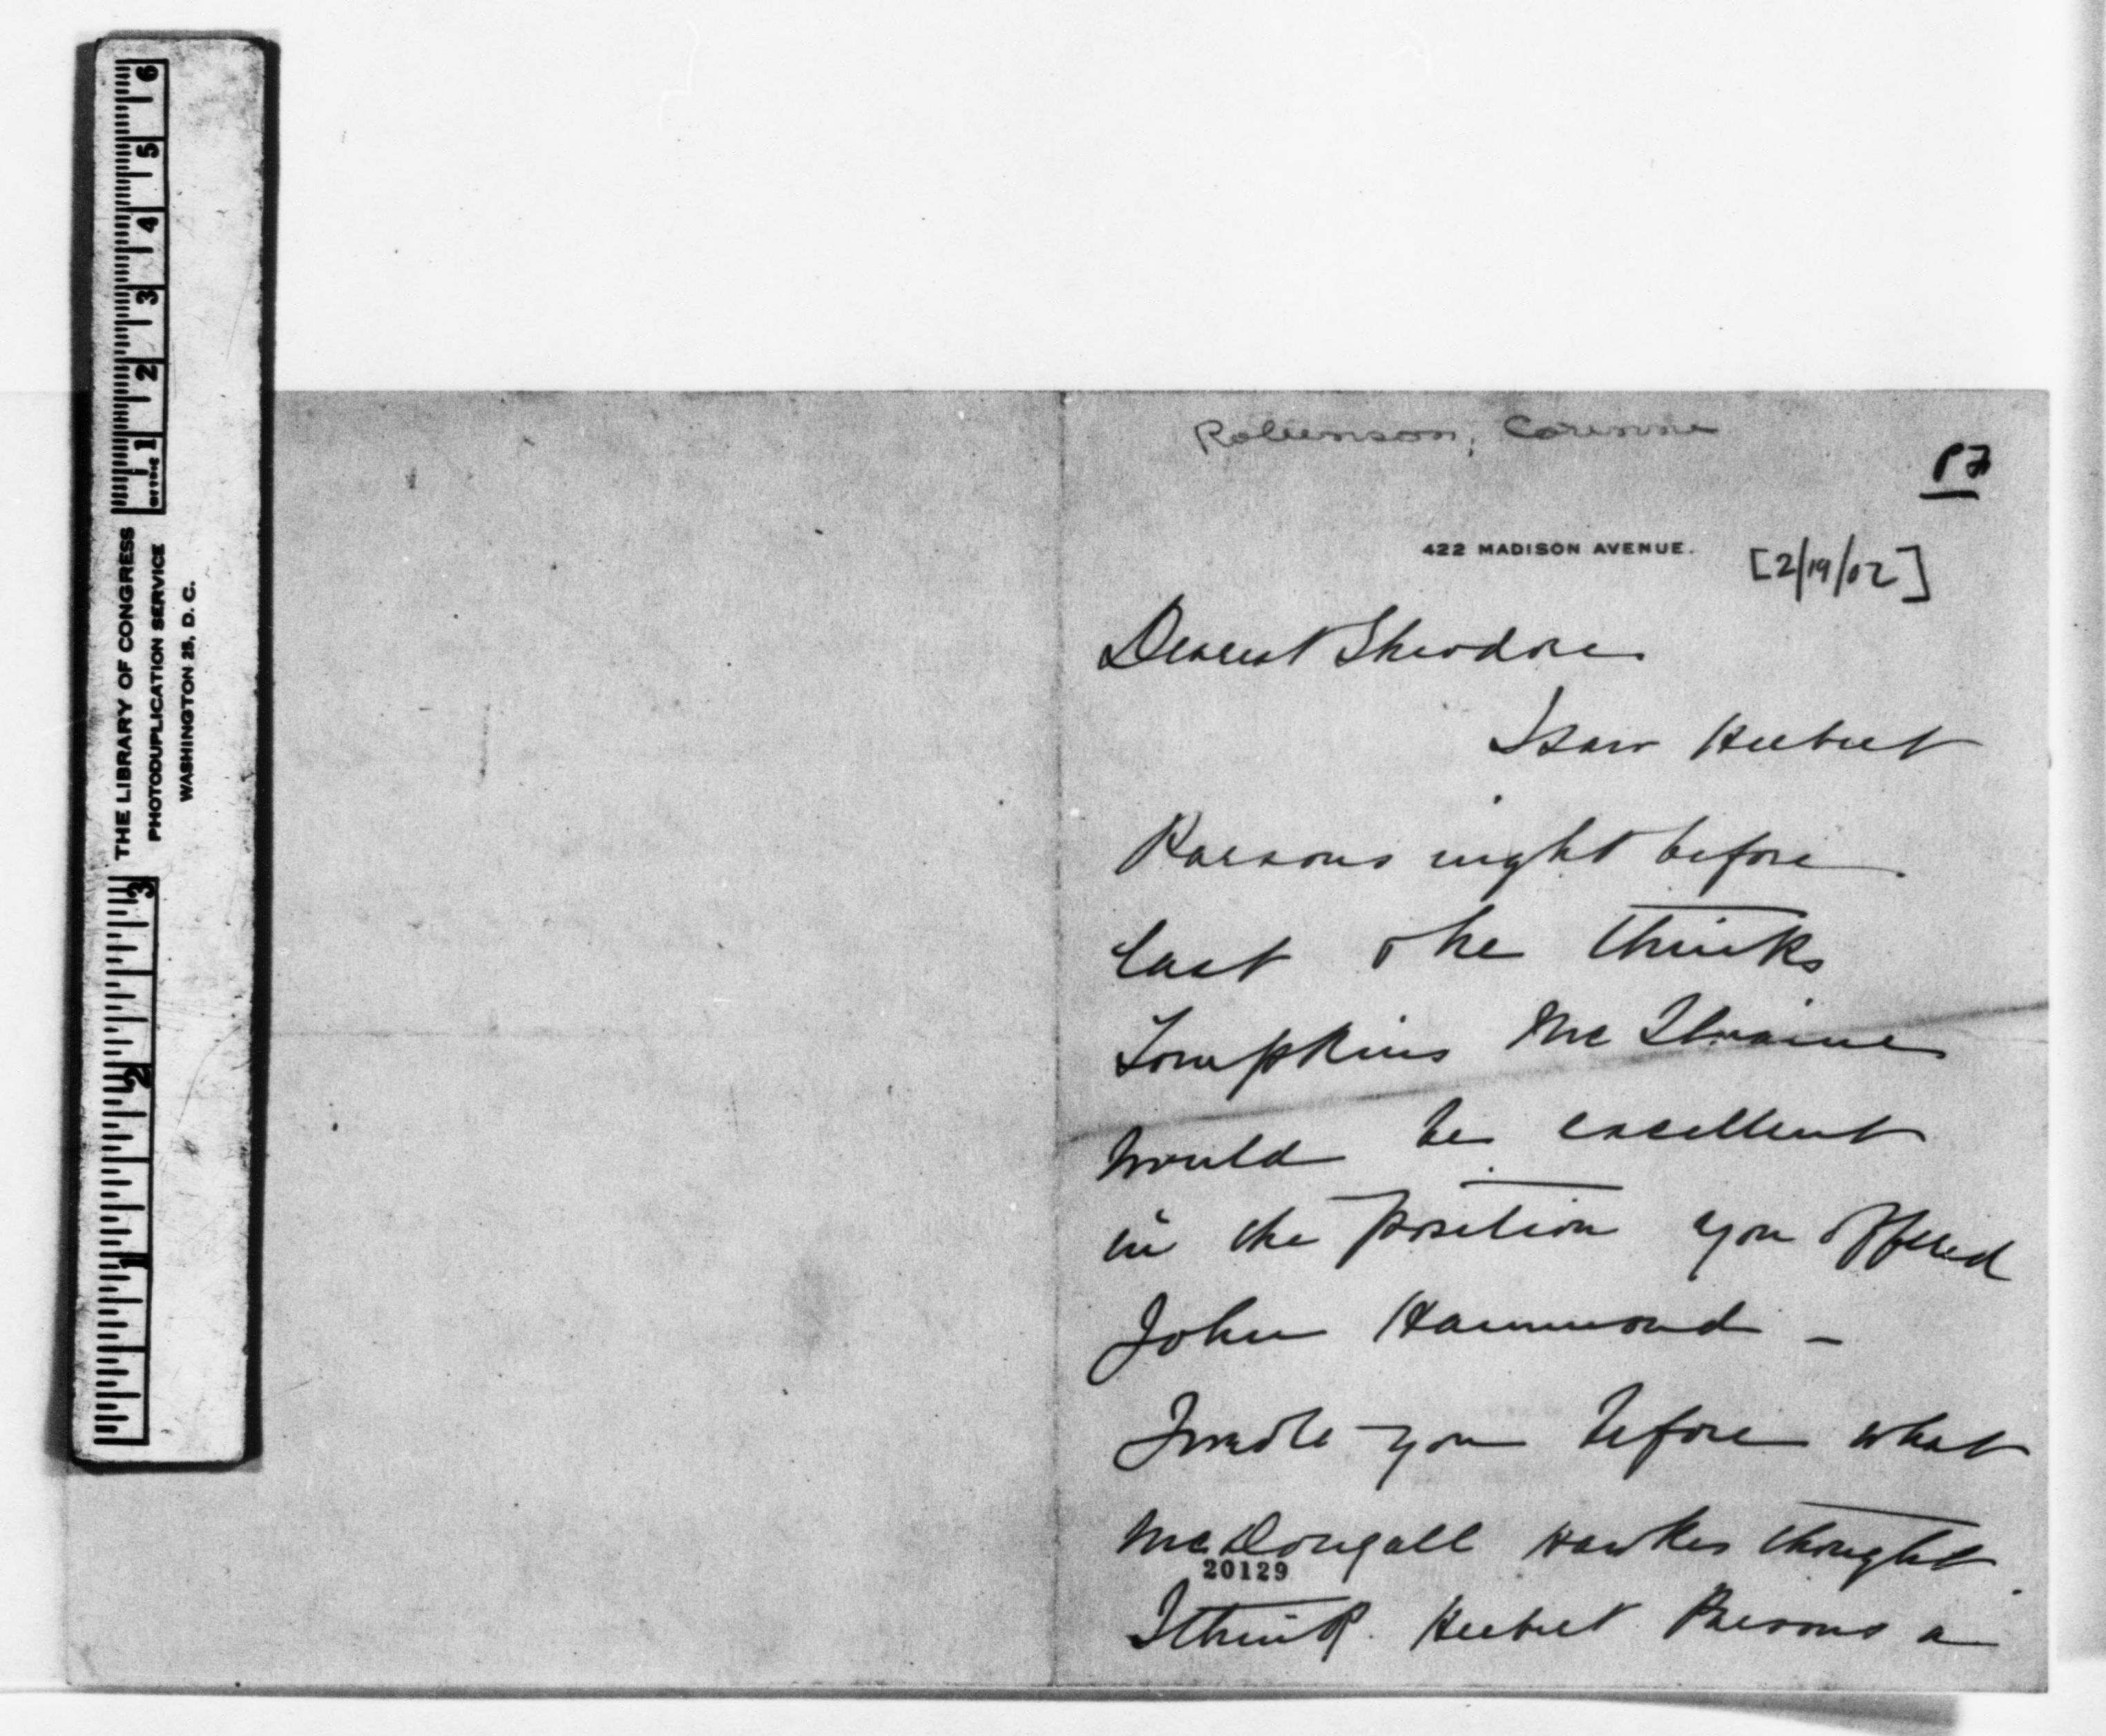 6
5
4
3
2
1
THE LIBRARY OF CONGRESS
PHOTODUPLICATION SERVICE
WASHINGTON 25, D. C.
3
2
1
Robinson, Corinne
422 MADISON AVENUE.
[2/19/02]
Dearest Theodore
I saw Herbert
Parsons night before
last & he thinks
Tompkins McIlvaine
would be excellent
in the position you offered
John Hammond –
I wrote you before what
McDougall Hawkes thought
20129
I think Herbert Parsons a